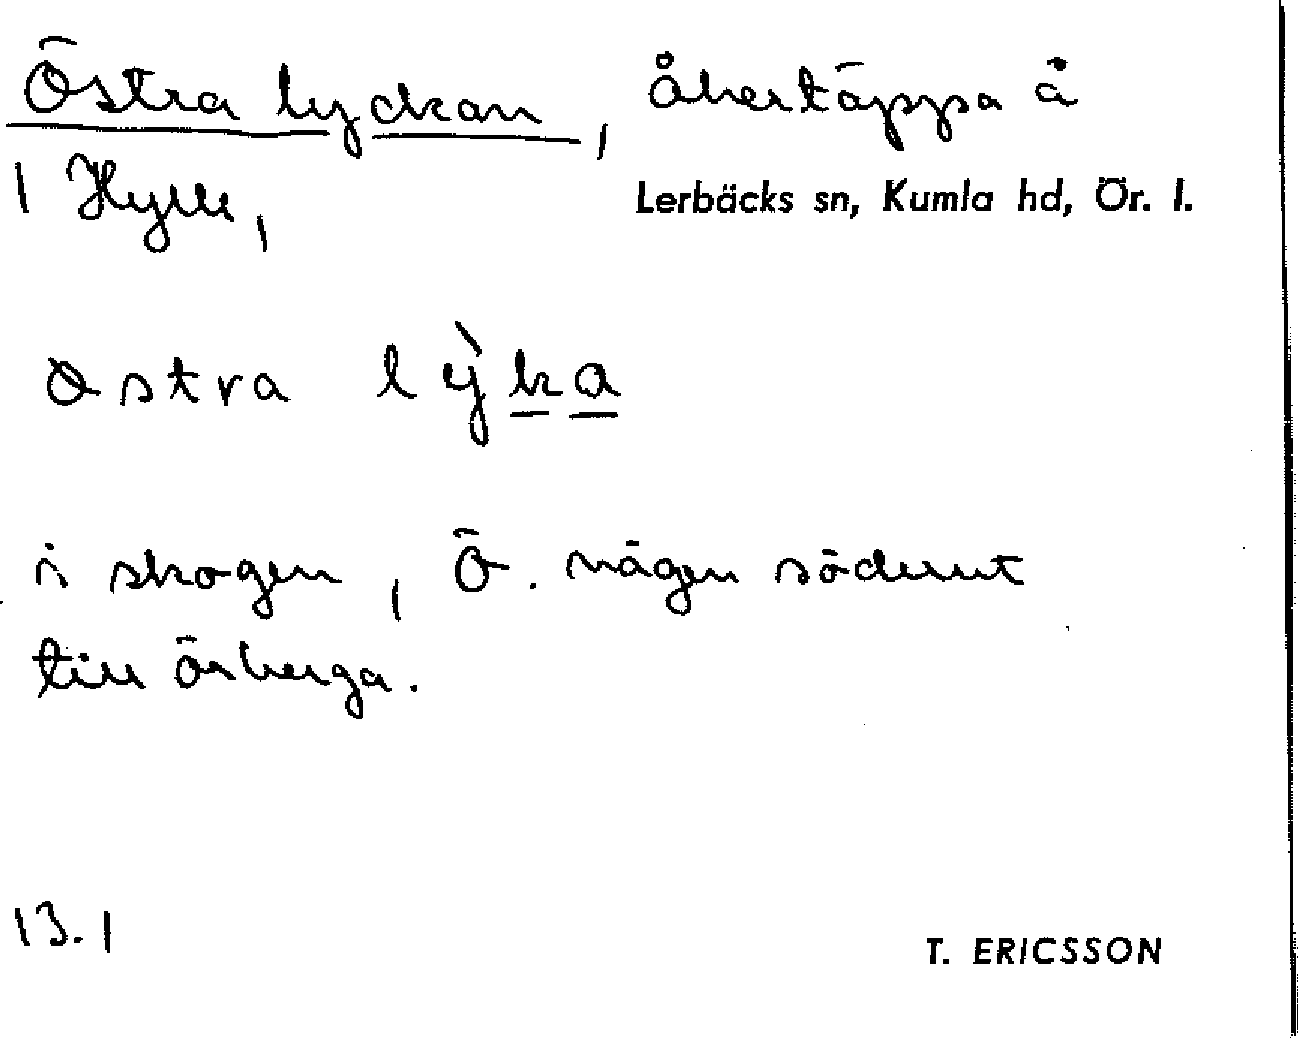 Östra lyckan, Åkertäppa å
1 Hyllt,
Lerbäcks sn, Kumla hd, Ör. l.
östra lỳka
i skogen, Ö. vägen söderut
till örberga.
13.1
T. ERICSSON